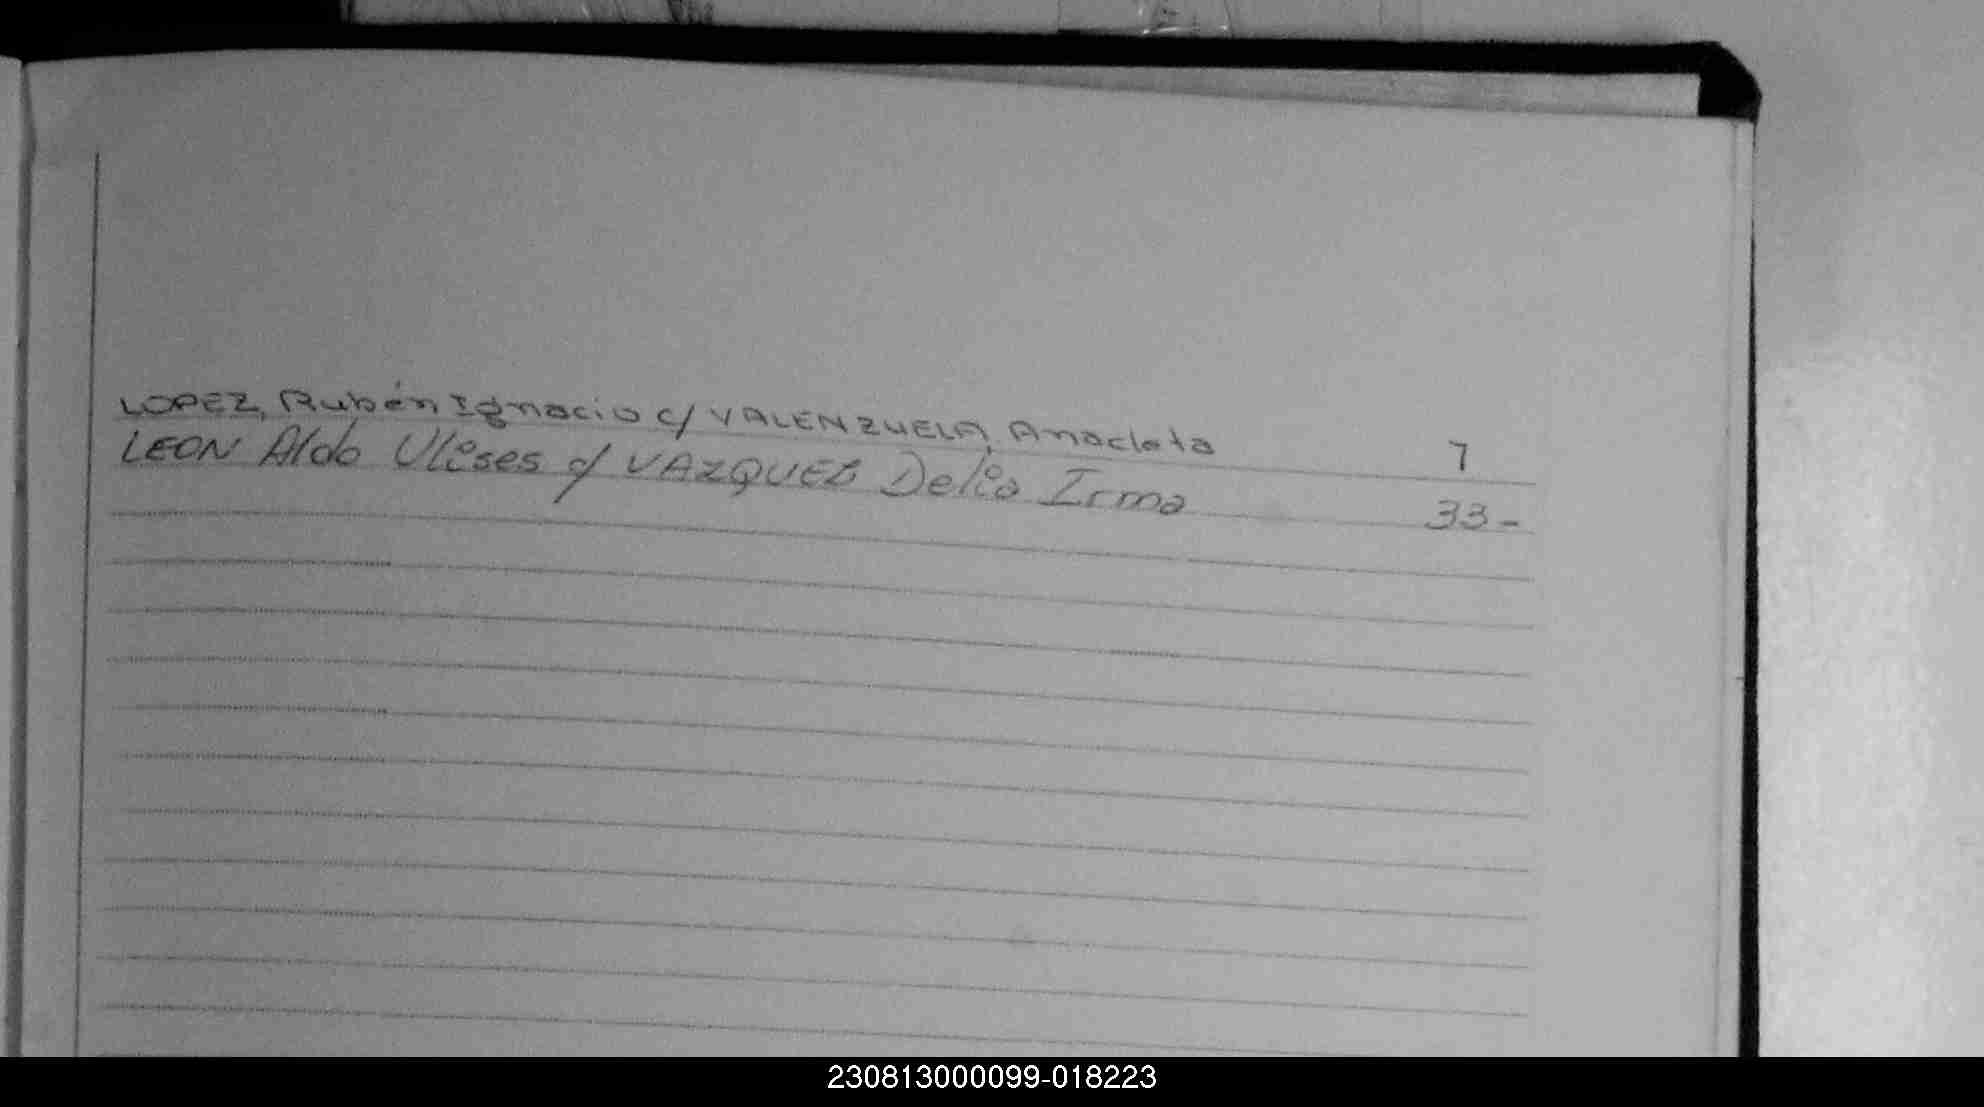 LOPEZ, Rubén Ignacio c/ VALENZUELA, Anacleta 7
LEON Aldo Ulises c/ VAZQUEZ Delia Irma 33-
230813000099-018223